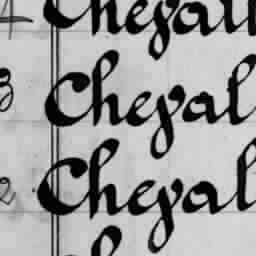 4 Chepall
3 Chepal
2 Chepal